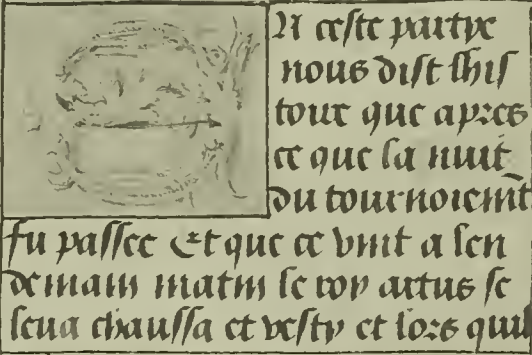 EN ceste partye
nous dist lhis
toire que apres
ce que la nuit
du tournoiem̄t
fu passee Et que ce vint a len
demain matin le roy artus se
leua chaussa et vesty et lors quil